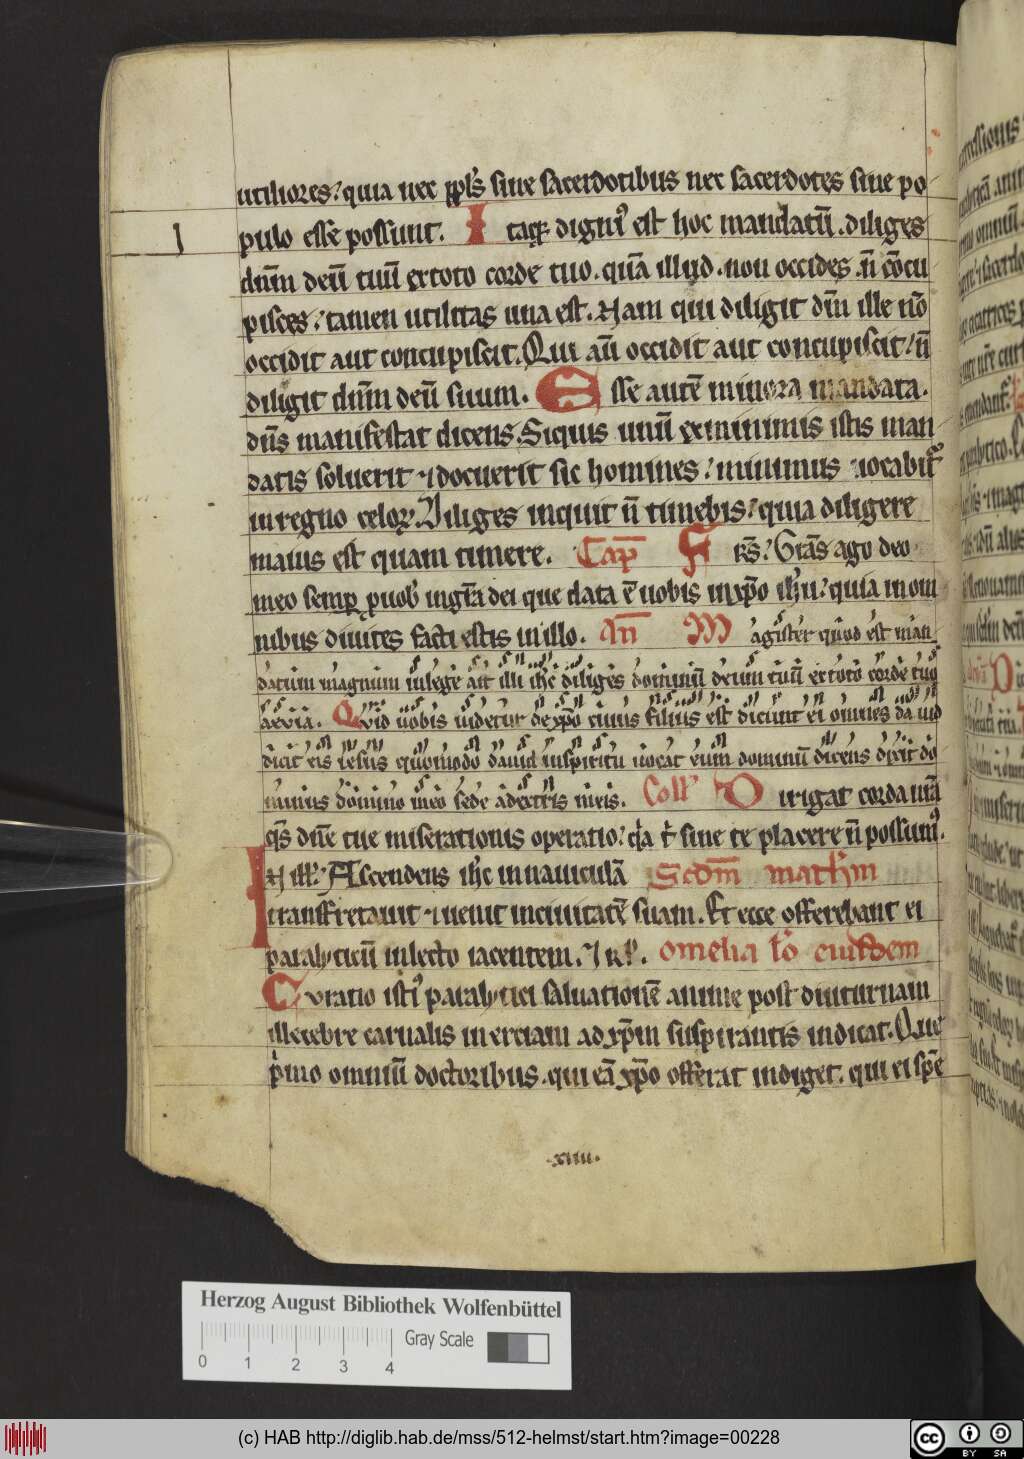 utiliores. quia nec ppls siue sacerdotibus nec sacerdotes siue po
pulo esse possunt. Itaq; dignu est hoc mandatū. diliges
J
dnm deū tuū ex toto corde tuo. quā illud. non occides. n̄ cōcu
pisces. tamen utilitas una est. Nam qui diligit dm̄ ille nō
occidit aut concupiscit. Qui aū occidit aut concupiscit. n̄
diligit dnm deū suum. Esse autē minora mandata.
dn̄s manifestat dicens. Siquis unū ex minimis istis man
datis soluerit ⁊ docuerit sic homines. minimus uocabit᷑
in regno celoꝝ. Diliges inquit n̄ timebis. quia diligere
maius est quam timere. Cap̄ Frs̄. Grās ago deo
meo semp̱ ꝓ uob̕ in grā dei que data ē uobis in xp̄o ih̄u. quia in om
nibus diuites facti estis in illo. An̄ Magister quod est man
datum magnum in lege ait illi ih̄c diliges dominū deum tuū ex toto corde tuo
aeuia. Quid uobis uidetur de xp̄o cuius filius est dicunt ei omnes dauid
dicit eis iesus quomodo dauid in spiritu uocat eum dominū dicens dixit do
minus domino meo sede a dextris meis. Coll Dirigat corda nr̄a
qs̄ dn̄e tue miserationis operatio. q̄a t̄ sine te placere n̄ possum᷒.
N ill. Ascendens ih̄c in nauiculā Scdm̄ mathm
transfretauit ⁊ uenit in ciuitatē suam. Et ecce offerebant ei
paralyticū in lecto iacentem. ⁊ Rl. Omelia lc̄o eiusdem
Curatio isti᷒ paralytici saluationē anime post diuturnam
illecebre carnalis inerciam ad xp̄m suspirantis indicat. Que
p̱mo omniū doctoribus. qui eā xp̄o offerat indiget. qui ei spē
.xiiii.
Herzog August Bibliothek Wolfenbüttel
Gray Scale
0 1 2 3 4
(c) HAB http://diglib.hab.de/mss/512-helmst/start.htm?image=00228
cc BY SA